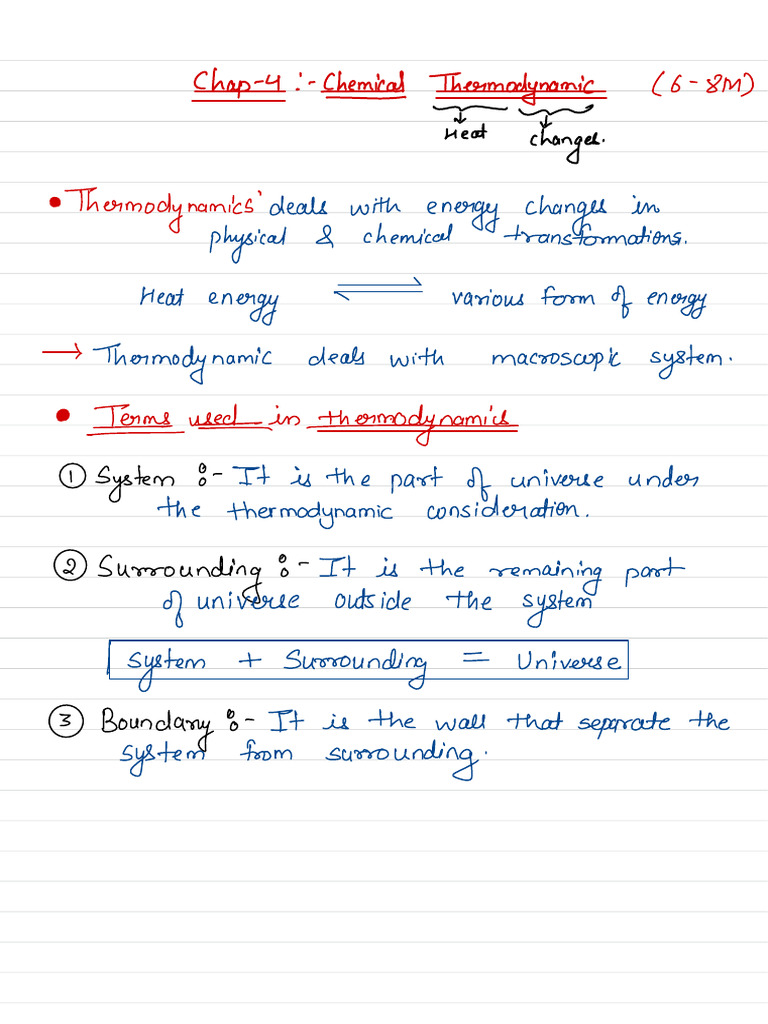 Chap-4 :- Chemical Thermodynamic (6-8M)
Heat changes.
• Thermodynamics' deals with energy changes in
physical & chemical transformations.
Heat energy ⇌ various form of energy
→ Thermodynamic deals with macroscopic system.
• Terms used in thermodynamics
① System :- It is the part of universe under
the thermodynamic consideration.
② Surrounding :- It is the remaining part
of universe outside the system
System + Surrounding = Universe
③ Boundary :- It is the wall that separate the
system from surrounding.